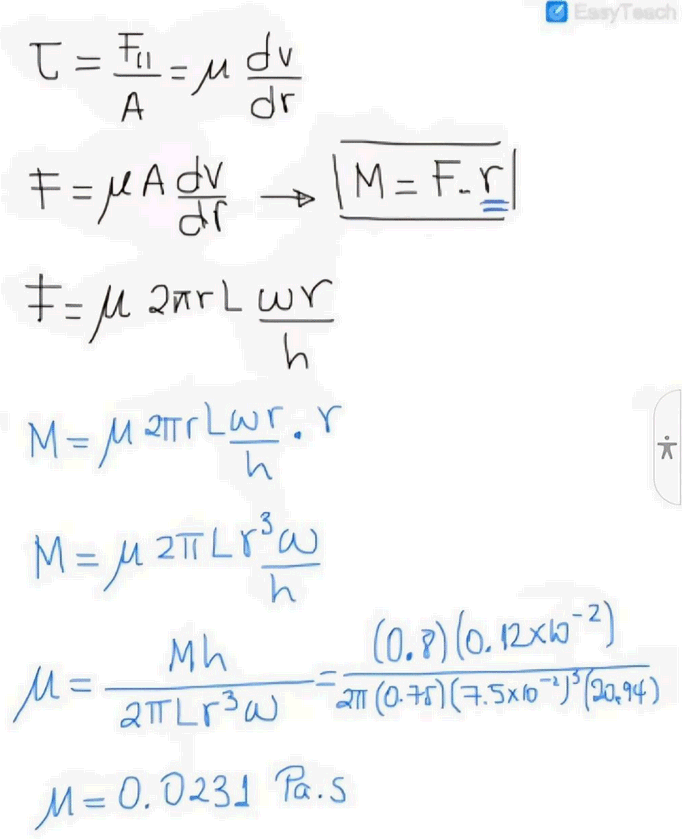 EasyTeach
τ = F∥/A = μ dv/dr
F = μ A dv/dr → M = F.r
F = μ 2πrL ωr/h
M = μ 2πrL ωr/h . r
M = μ 2πL r³ω/h
μ = Mh/2πLr³ω = (0.8)(0.12×10⁻²)/2π(0.75)(7.5×10⁻²)³(20.94)
μ = 0.0231 Pa.s